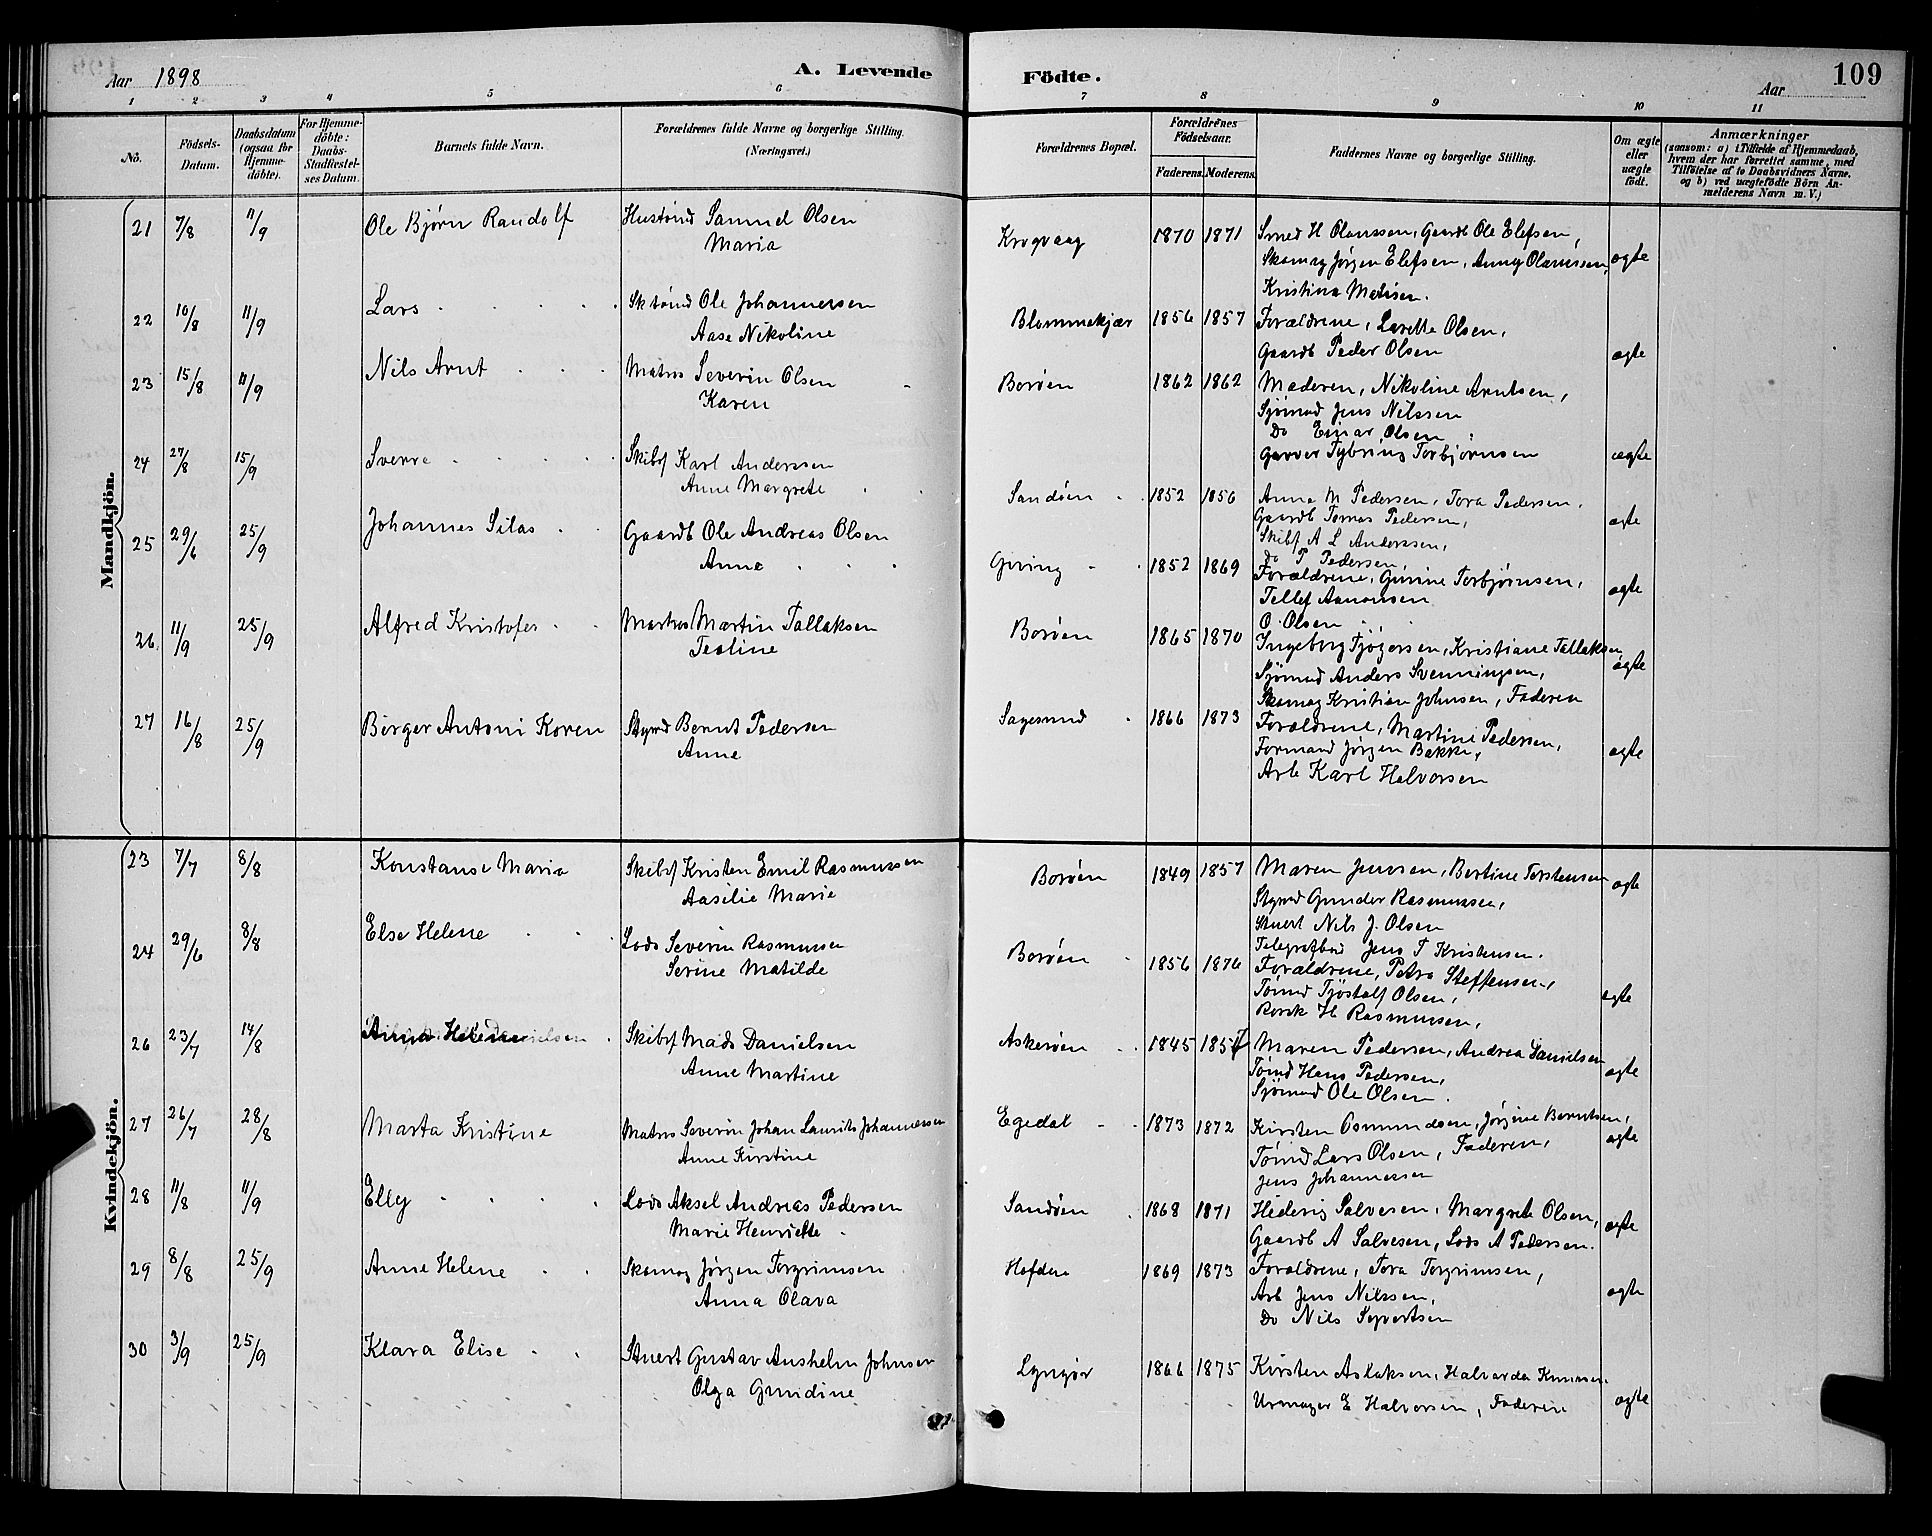 Aar 1898
A. Levende
Födte.
Aar
109
1 2 3 4 5 6 7 8 9 10 11
No.
Födsels-
Datum.
Daabsdatum
(ogsaa for
Hjemme-
döbte).
For Hjemme-
döbte:
Daabs-
Stadfæstel-
ses Datum.
Barnets fulde Navn.
Forældrenes fulde Navne og borgerlige Stilling.
(Næringsvei.)
Forældrenes Bopæl.
Forældrenes
Födselsaar.
Faderens. Moderens.
Faddernes Navne og borgerlige Stilling.
Om ægte
eller
uægte
födt.
Anmærkninger
(saasom: a) i Tilfælde af Hjemmedaab,
hvem der har forrettet samme, med
Tilföielse af to Daabsvidners Navne.
og b) ved uægtefödte Börn An-
melderens Navn m. V.)
Mandkjön.
21 7/8 11/9 Ole Bjørn Randolf Hustømd Samuel Olsen
Maria
Krogvaag 1870 1871 Smed H Olanssen, Gaardb Ole Elefsen,
Skomag Jørgen Elefsen, Anny Olanssen, ægte
Kristina Madsen.
22 10/8 11/9 Lars Sktømd Ole Johannessen
Aase Nikoline
Blommekjær 1856 1857 Forældrene, Lovette Olsen,
Gaardb Peder Olsen ægte
23 15/8 11/9 Nils Arnt Matros Severin Olsen
Karen
Borøen 1862 1862 Moderen, Nikoline Arntsen,
Sjømnd Jens Nilssen
Do Einar Olsen
Garver Tybring Torbjørnsen ægte
24 27/8 15/9 Sverre Skibsf Karl Anderssen
Anne Margrete
Sandøen 1852 1856 Anna M Pedersen, Tora Pedersen,
Gaardb Tomas Pedersen, ægte
Skibsf A L Anderssen,
Do P Pedersen,
25 29/6 25/9 Johannes Silas Gaardb Ole Andreas Olsen
Anne
Giving 1852 1869 Forældrene, Gurine Torbjørnsen,
Tellef Aanonsen ægte
O. Olsen
26 11/9 25/9 Alfred Kristofer Matros Martin Tallaksen
Teoline
Borøen 1865 1870 Ingeborg Tjøgersen, Kristiane Tallaksen
Sjömnd Anders Svenningsen, ægte
Skomag Kristian Johnsen, Faderen
27 16/8 25/9 Birger Antoni Koren Stymd Bernt Pedersen
Anne
Sagesund 1866 1873 Forældrene, Martine Pedersen,
Formand Jørgen Bakke, ægte
Arb Karl Halvorsen
Kvindekjön.
23 7/7 8/8 Konstanse Marie Skibsf Kristen Emil Rasmussen
Aasilie Marie
Borøen 1849 1857 Maren Jenssen, Bertine Torstensen ægte
Stymd Gunder Rasmussen,
Stuert Nils J. Olsen
Telegrafbud Jens T Kristensen.
24 29/6 8/8 Else Helene Lods Severin Rasmussen
Serine Matilde
Borøen 1856 1876 Forældrene, Petra Steffensen,
Tømd Tjøstolf Olsen, ægte
Rorsk H Rasmussen,
26 23/7 14/8 Anna Helene Skibsf Mads Danielsen
Anne Martine
Askerøen 1845 1857 Maren Pedersen, Andrea Danielsen
Tømd Hans Pedersen, ægte
Sjömnd Ole Olsen.
27 26/7 28/8 Marta Kristine Matros Severin Johan Laurits Johannessen
Anne Kirstine
Egedal 1873 1872 Kirsten Osmundsen, Jørgine Berntsen,
Tømd Lars Olsen, Faderen, ægte
Jens Johannessen
28 11/8 11/9 Elly Lods Aksel Andreas Pedersen
Marie Henriette
Sandøen 1868 1871 Hedevig Salvesen, Margrete Olsen,
Gaardb A Salvesen, Lods A Pedersen. ægte
29 8/8 25/9 Anne Helene Skomag Jørgen Torgrimsen
Anna Olava
Hofden 1869 1873 Forældrene, Tora Torgrimsen,
Arb Jens Nilssen, ægte
Do Nils Syvertsen
30 3/9 25/9 Klara Elise Stuert Gustav Anshelm Johnsen
Olga Gundine
Lyngør 1866 1875 Kirsten Aslaksen, Halvarda Knudsen.
Urmager E Halvorsen, Faderen ægte